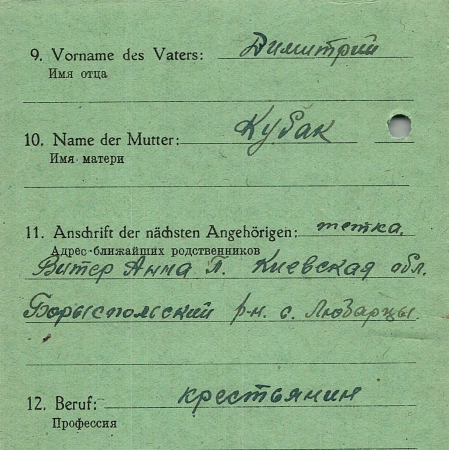 9. Vorname des Vaters: Димитрий
Имя отца
10. Name der Mutter: Кубак
Имя матери
11. Anschrift der nächsten Angehörigen: тетка.
Адрес ближайших родственников
Витер Анна П. Киевская обл.
Борыспольский р-н. с. Любарцы.
12. Beruf: крестьянин
Профессия